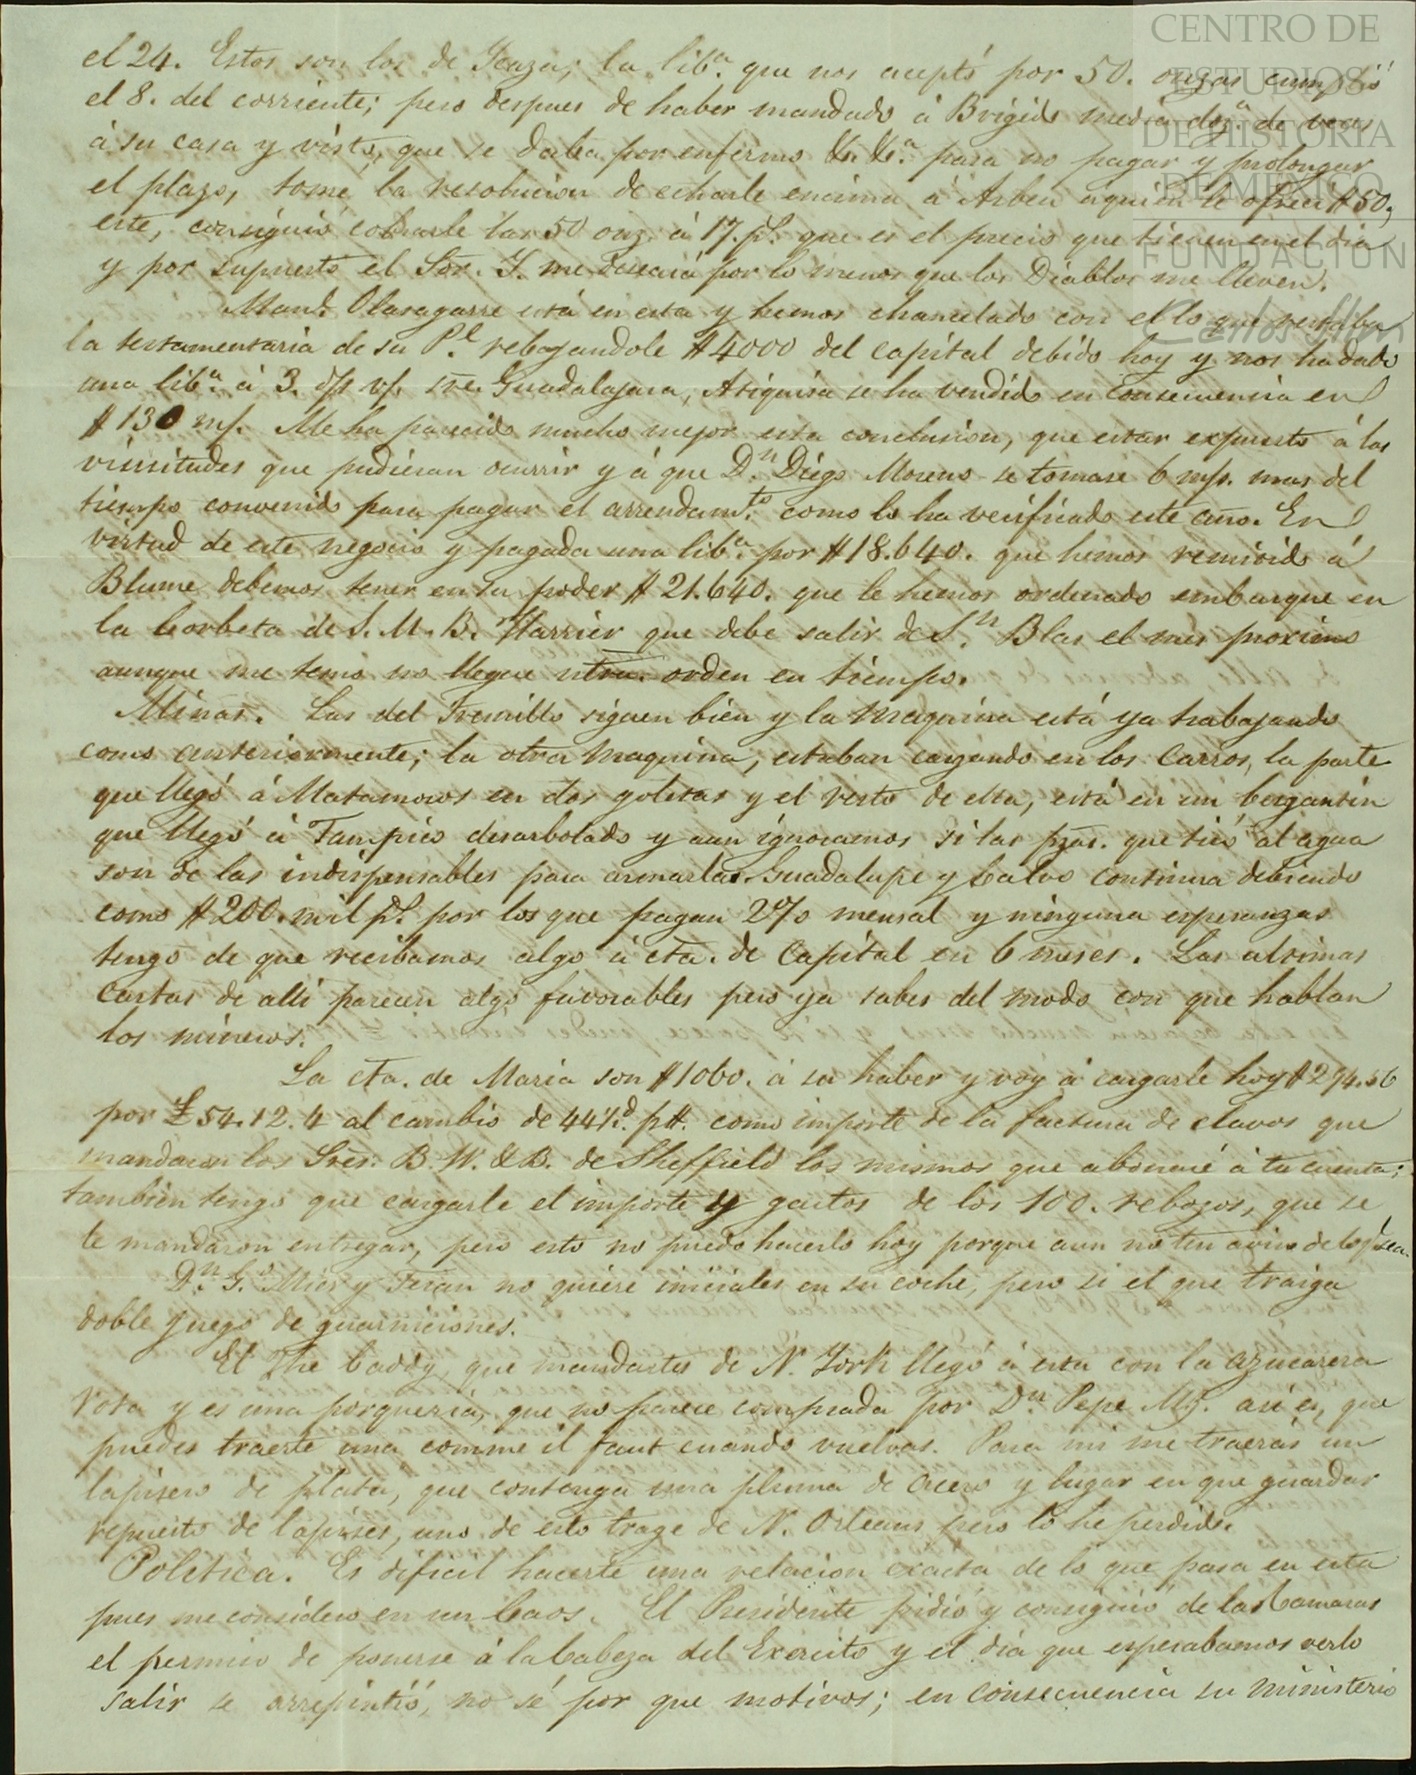 CENTRO DE
ESTUDIOS
DE HISTORIA
DE MÉXICO
FUNDACIÓN
Carlos Slim
el 24. Estos son los de Icaza; la lib.ª que nos aceptó por 50. onzas cumplió
el 8. del corriente; pero despues de haber mandado á Brigido media doz.ª de veces
á su casa y visto, que se daba por enfermo &. &.ª para no pagar y prolongar
el plazo, tomé la resolucion de echarle encima á Arbeu aquien le ofrecí $50,
este, consiguió cobrarle las 50 onz. á 17. p.s que es el precio que tienen en el dia
y por supuesto el Sor. I. me deseará por lo menos que los Diablos me lleven.
Man.l Olasagarre está en esta y hemos chancelado con el lo que restaba
la testamentaria de su P.e rebajandole $4000 del capital debido hoy y nos ha dado
una lib.ª á 3. d/s v/. sre. Guadalajara, Atequiza se ha vendido en consecuencia en
$130 m/. Me ha parecido mucho mejor esta conclusion, que estar expuesto á las
vicisitudes que pudieran ocurrir y á que D.n Diego Moreno se tomase 6 m/s. mas del
tiempo convenido para pagar el arrendam.to como lo ha verificado este año. En
virtud de este negocio y pagada una lib.ª por $18.640. que hemos remitido á
Blume debemos tener en su poder $21.640. que le hemos ordenado embarque en
la Corbeta de S. M. B. Harrier que debe salir de S.n Blas el mes proximo
aunque me temo no llegue ntra. orden en tiempo.
Minas. Las del Fresnillo siguen bien y la maquina está ya trabajando
como anteriormente; la otra maquina, estaban cargando en los carros, la parte
que llegó á Matamoros en dos goletas y el resto de ella, está en un bergantin
que llegó á Tampico desarbolado y aun ignoramos si las pzas. que tiró al agua
son de las indispensables para armarlas. Guadalupe y Calvo continua debiendo
como $200. mil p.s por los que pagan 2% mensal y ninguna esperanzas
tengo de que recibamos algo á cta. de Capital en 6 meses. Las ultimas
cartas de alli parecen algo favorables pero ya sabes del modo con que hablan
los mineros.
La cta. de Maria son $1060. á su haber y voy á cargarle hoy $294.56
por £54.12.4 al cambio de 44½d. p$. como importe de la factura de clavos que
mandaron los Sres. B. W. & B. de Sheffield los mismos que abonaré á tu cuenta;
tambien tengo que cargarle el importe y gastos de los 100. rebozos, que se
le mandaron entregar, pero esto no puedo hacerlo hoy porque aun no ten aviso de lo q̃ sea.
D.n G.o Mier y Teran no quiere iniciales en su coche, pero si el que traiga
doble juego de guarniciones.
El The Caddy que mandastes de N. York llegó á esta con la azucarera
rota y es una porqueria, que no parece comprada por D.n Pepe Mz. asi es, que
puedes traerte una comme il faut cuando vuelvas. Para mi me traerás un
lapisero de plata, que contenga una pluma de acero y lugar en que guardar
repuesto de lapises, uno de esto trage de N. Orleans pero lo he perdido.
Politica. Es dificil hacerte una relacion exacta de lo que pasa en esta
pues me considero en un Caos. El Presidente pidió y consiguió de las Camaras
el permiso de ponerse á la Cabeza del Exército y el dia que esperabamos verlo
salir se arrepintió, no sé por que motivos; en consecuencia su ministerio